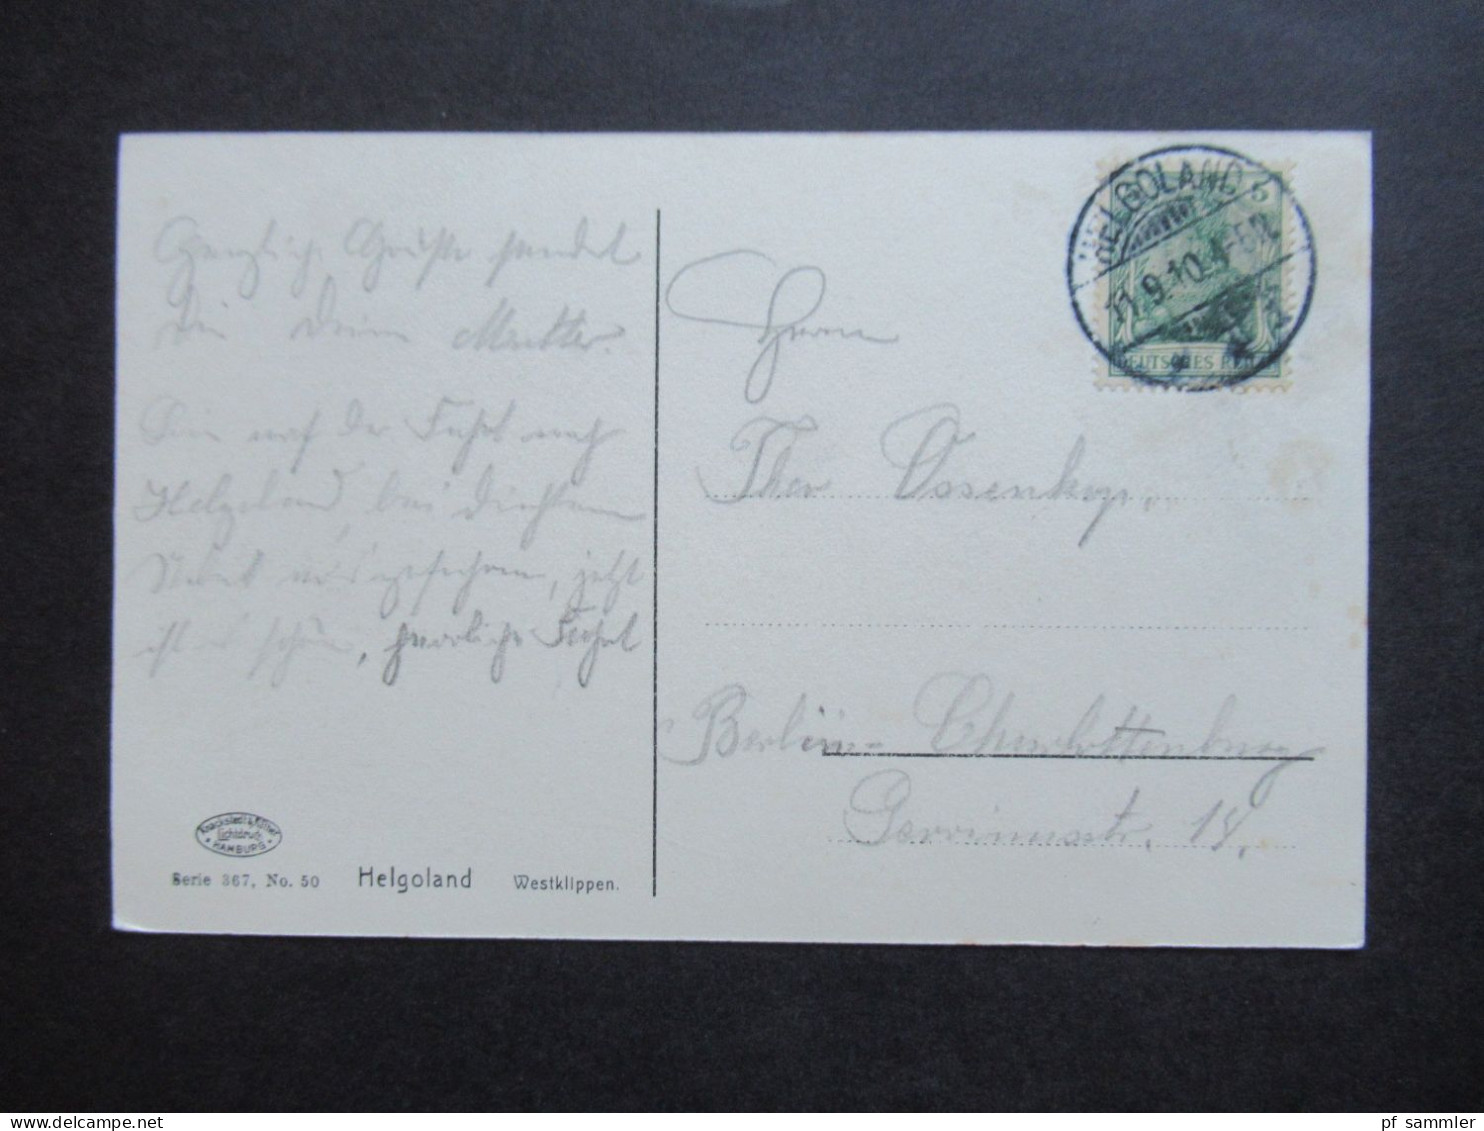 Herzlich Grüße sendet
Dir Deine Mutter.
Bin auf der Fahrt nach
Helgoland, bei dichtem
Nebel ausgefahren, jetzt
ist es schön, herrliche Fahrt
Knackstedt & Näther
Lichtdruck
HAMBURG
Serie 367, No. 50 Helgoland Westklippen.
HELGOLAND
11.9.10. 4-5N.
5
DEUTSCHES REICH
Herrn
Theo Ossenkop.
Berlin-Charlottenburg
Gervinusstr. 14.
pf_sammler
www.delcampe.net